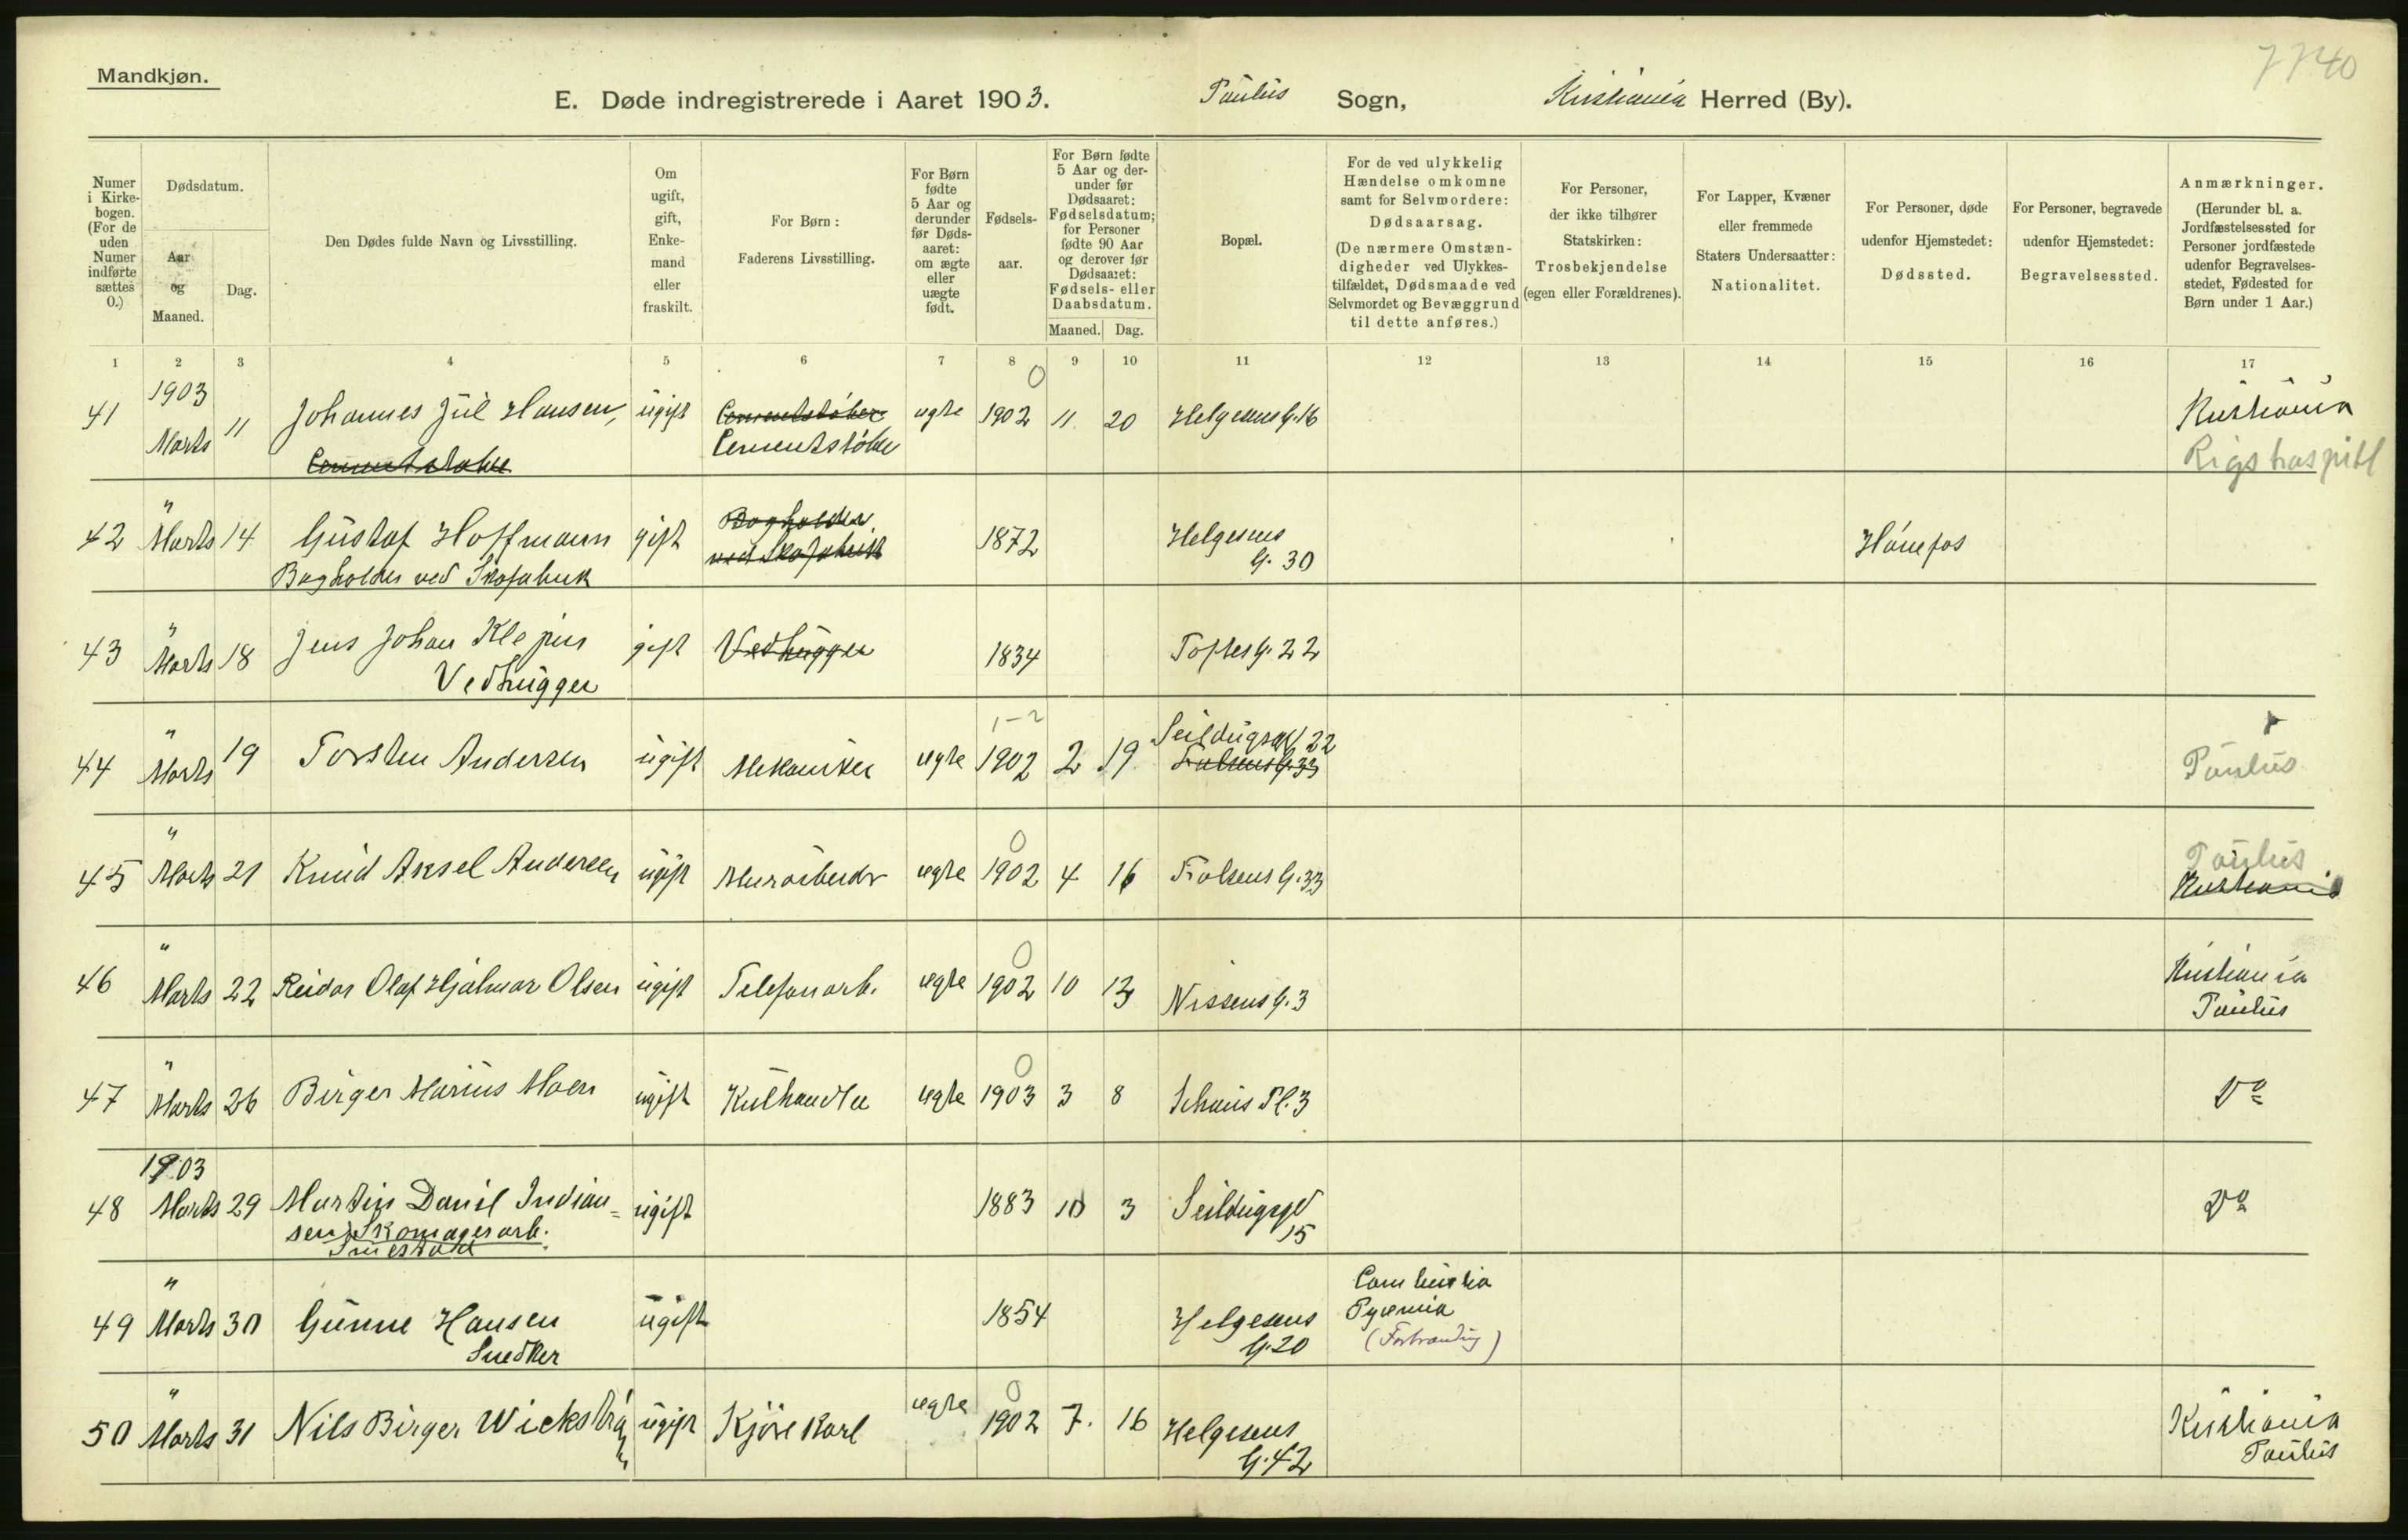 7740
Mandkjøn.
E. Døde indregistrerede i Aaret 1903. Paulus Sogn, Kristiania Herred (By).
Numer i Kirkebogen. (For de uden Numer indførte sættes 0.)
Dødsdatum.
Aar og Maaned.
Dag.
Den Dødes fulde Navn og Livsstilling.
Om ugift, gift, Enkemand eller fraskilt.
For Børn: Faderens Livsstilling.
For Børn fødte 5 Aar og derunder før Dødsaaret: om ægte eller uægte født.
Fødselsaar.
For Børn fødte 5 Aar og derunder før Dødsaaret: Fødselsdatum; for Personer fødte 90 Aar og derover før Dødsaaret: Fødsels- eller Daabsdatum.
Maaned. Dag.
Bopæl.
For de ved ulykkelig Hændelse omkomne samt for Selvmordere: Dødsaarsag. (De nærmere Omstændigheder ved Ulykkestilfældet, Dødsmaade ved Selvmordet og Bevæggrund til dette anføres.)
For Personer, der ikke tilhører Statskirken: Trosbekjendelse (egen eller Forældrenes).
For Lapper, Kvæner eller fremmede Staters Undersaatter: Nationalitet.
For Personer, døde udenfor Hjemstedet: Dødssted.
For Personer, begravede udenfor Hjemstedet: Begravelsessted.
Anmærkninger. (Herunder bl. a. Jordfæstelsessted for Personer jordfæstede udenfor Begravelsesstedet, Fødested for Børn under 1 Aar.)
1 2 3 4 5 6 7 8 9 10 11 12 13 14 15 16 17
41 1903 Marts 11 Johannes Juul Hansen, ugift Cementstøber ægte 0 1902 11. 20 Helgesens G. 16 Kristiania
Cementstøber Cementstøber Rigshospitl
42 " Marts 14 Gustaf Hoffmann gift Bogholder ved Skofabrik 1872 Helgesens G. 30 Hønefos
Bogholder ved Skofabrik
43 " Marts 18 Jens Johan gift Vedhugger 1834 Toftes G. 22
Vedhugger
44 " Marts 19 Torsten Andersen ugift Mekaniker ægte 1-2 1902 2 19 Seildugsgd 22 Paulus
Falsens G. 33
45 " Marts 21 Knud Aksel Andersen ugift Murarbeider ægte 0 1902 4 16 Falsens G. 33 Paulus
Kristiania
46 " Marts 22 Reidar Olaf Hjalmar Olsen ugift Telefonarb. ægte 0 1902 10 13 Nissens G. 3 Kristiania
Paulus
47 " Marts 26 Birger Marius Moen ugift Kulhandler ægte 0 1903 3 8 Schous Pl. 3 Do
48 1903 Marts 29 Martin Daniel Indian= ugift 1883 10 3 Seildugsgd 15 Do
sen Skomagerarb.
49 " Marts 30 Gunne Hansen ugift 1854 Helgesens G. 20 Combustia
Snedker Pyæmia
(Forbrænding)
50 " Marts 31 Nils Birger Wickstrøm ugift Kjørekarl ægte 0 1902 7. 16 Helgesens G. 42 Kristiania
Paulus